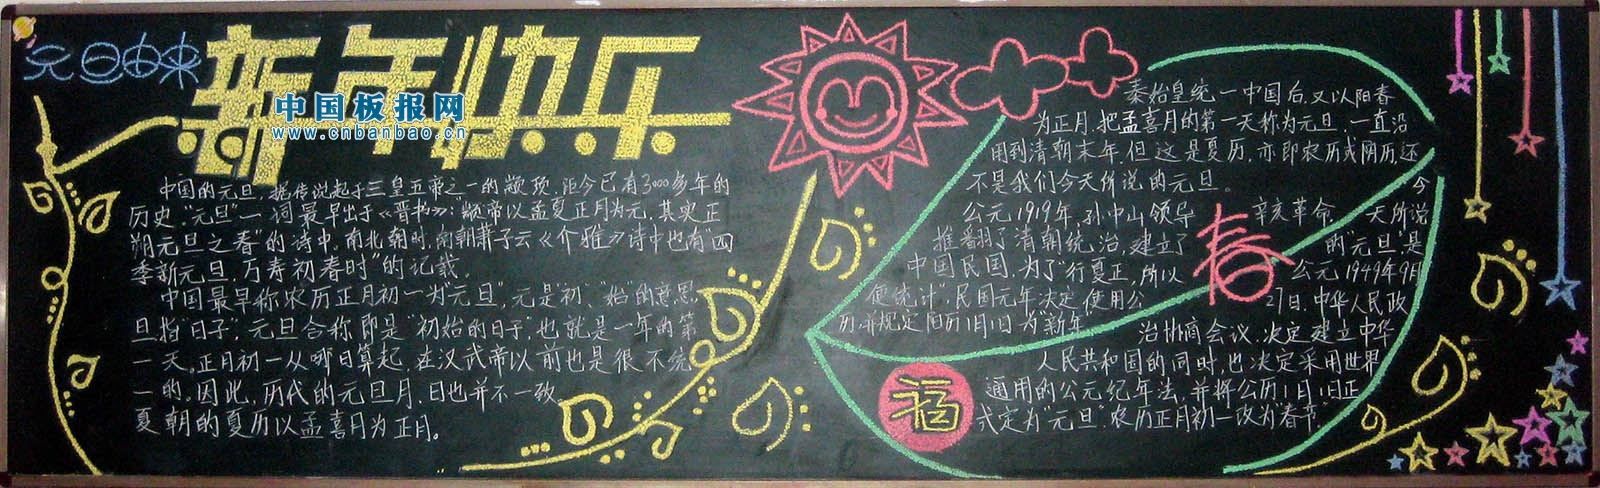 元旦由来
新年快乐
中国板报网
www.cnbanbao.cn
中国的元旦,据传说起于三皇五帝之一的颛顼,距今已有3000多年的
历史."元旦"一词最早出于《晋书》:颛帝以孟夏正月为元,其实正
朔元旦之春"的诗中.南北朝时,南朝萧子云《介雅》诗中也有"四
季新元旦,万寿初春时"的记载。
中国最早称农历正月初一为"元旦",元是初、始的意思,
旦指"日子",元旦合称即是"初始的日子",也就是一年的第
一天,正月初一从哪日算起,在汉武帝以前也是很不统
一的,因此,历代的元旦月、日也并不一致。
夏朝的夏历以孟喜月为正月。
秦始皇统一中国后,又以阳春
为正月,把孟喜月的第一天称为元旦,一直沿
用到清朝末年,但这是夏历,亦即农历或阴历,还
不是我们今天所说的元旦。
公元1919年,孙中山领导
辛亥革命
推翻了清朝统治,建立了
中国民国.为了"行夏正,所以
便统计",民国元年决定使用公
历,并规定阳历1月1日为"新年"
今
天所说
的"元旦"是
公元1949年9月
27日,中华人民政
治协商会议,决定建立中华
人民共和国的同时,也决定采用世界
通用的公元纪年法,并将公历1月1日正
式定为"元旦",农历正月初一改为"春节"
春
福